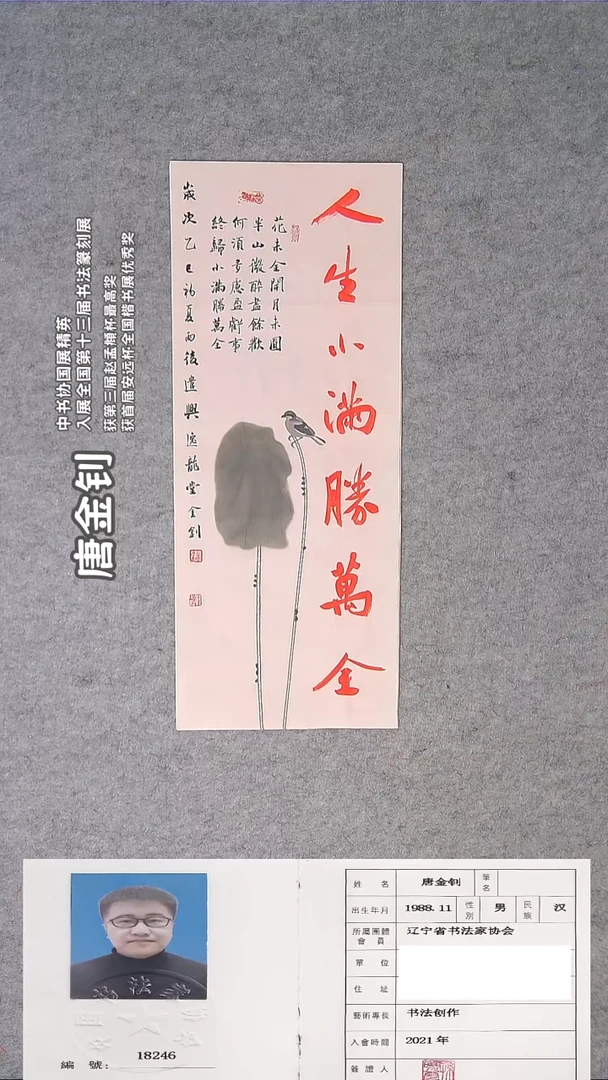 人生小满勝萬全
花未全開月未圓
半山微醉盡餘歡
何須多慮盈虧事
終歸小满勝萬全
歲次乙巳初夏雨後遣興 龍堂金釗
中书协国展精英
入展全国第十三届书法篆刻展
获第三届赵孟頫杯最高奖
获首届安远杯全国楷书展优秀奖
唐金钊
編 號: 18246
姓 名 唐金钊 筆名
出生年月 1988.11 性别 男 民族 汉
所屬團體會員 辽宁省书法家协会
單 位
住 址
藝術專長 书法创作
入會時間 2021 年
簽證人